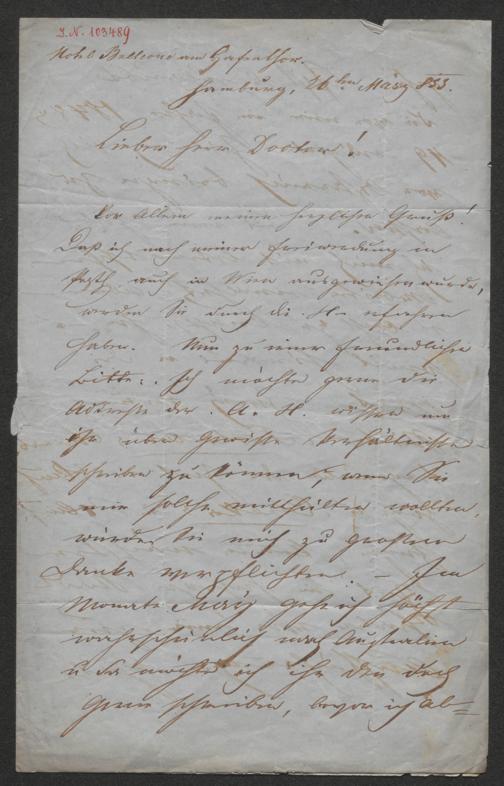 I.N. 103489
Hotel Bellevue am Hafenthor.
Hamburg, 26ten März 853.
Lieber Herr Doctor!
Vor Allem meinen herzlichen Gruß!
Daß ich nach meiner in
Pesth auch in Wien ausgewiesen wurde,
werden Sie durch die H. erfahren
haben. Nun zu einer freundlichen
Bitte: Ich möchte gerne die
Addresse der A. H. wissen um
ihr über gewisse Verhältnisse
schreiben zu können, wenn Sie
mir solche mittheilen wollten,
würden Sie mich zu großem
Danke verpflichten. – Im
Monate May gehe ich höchst
wahrscheinlich nach Australien
u da möchte ich ihr denn doch
gerne schreiben, bevor ich ab=